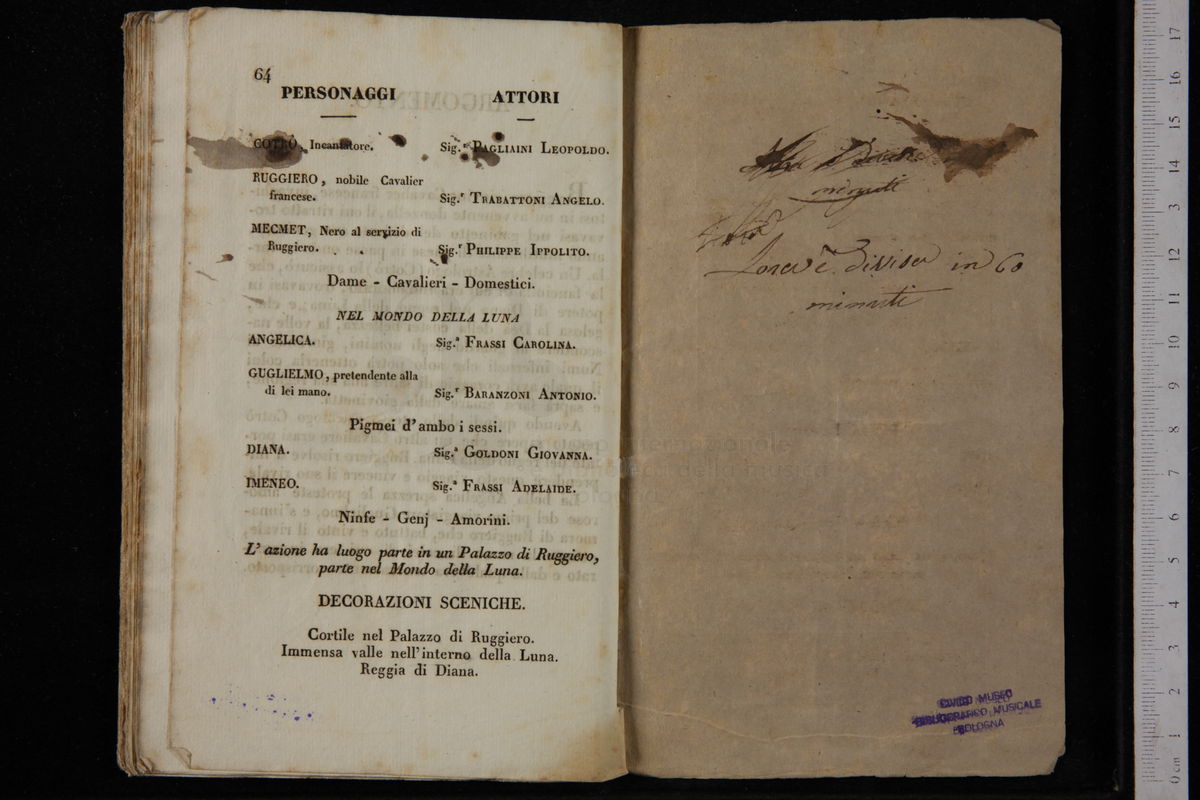 64
PERSONAGGI ATTORI
COTRÒ, Incantatore. Sig.r PAGLIAINI LEOPOLDO.
RUGGIERO, nobile Cavalier
francese. Sig.r TRABATTONI ANGELO.
MECMET, Nero al servizio di
Ruggiero. . . Sig.r PHILIPPE IPPOLITO.
Dame - Cavalieri - Domestici.
NEL MONDO DELLA LUNA
ANGELICA. Sig.a FRASSI CAROLINA.
GUGLIELMO, pretendente alla
di lei mano. Sig.r BARANZONI ANTONIO.
Pigmei d'ambo i sessi.
DIANA. Sig.a GOLDONI GIOVANNA.
IMENEO. Sig.a FRASSI ADELAIDE.
Ninfe - Genj - Amorini.
L'azione ha luogo parte in un Palazzo di Ruggiero,
parte nel Mondo della Luna.
DECORAZIONI SCENICHE.
Cortile nel Palazzo di Ruggiero.
Immensa valle nell'interno della Luna.
Reggia di Diana.
minuti
Lora è divisa in 60
minuti
CIVICO MUSEO
BIBLIOGRAFICO MUSICALE
BOLOGNA